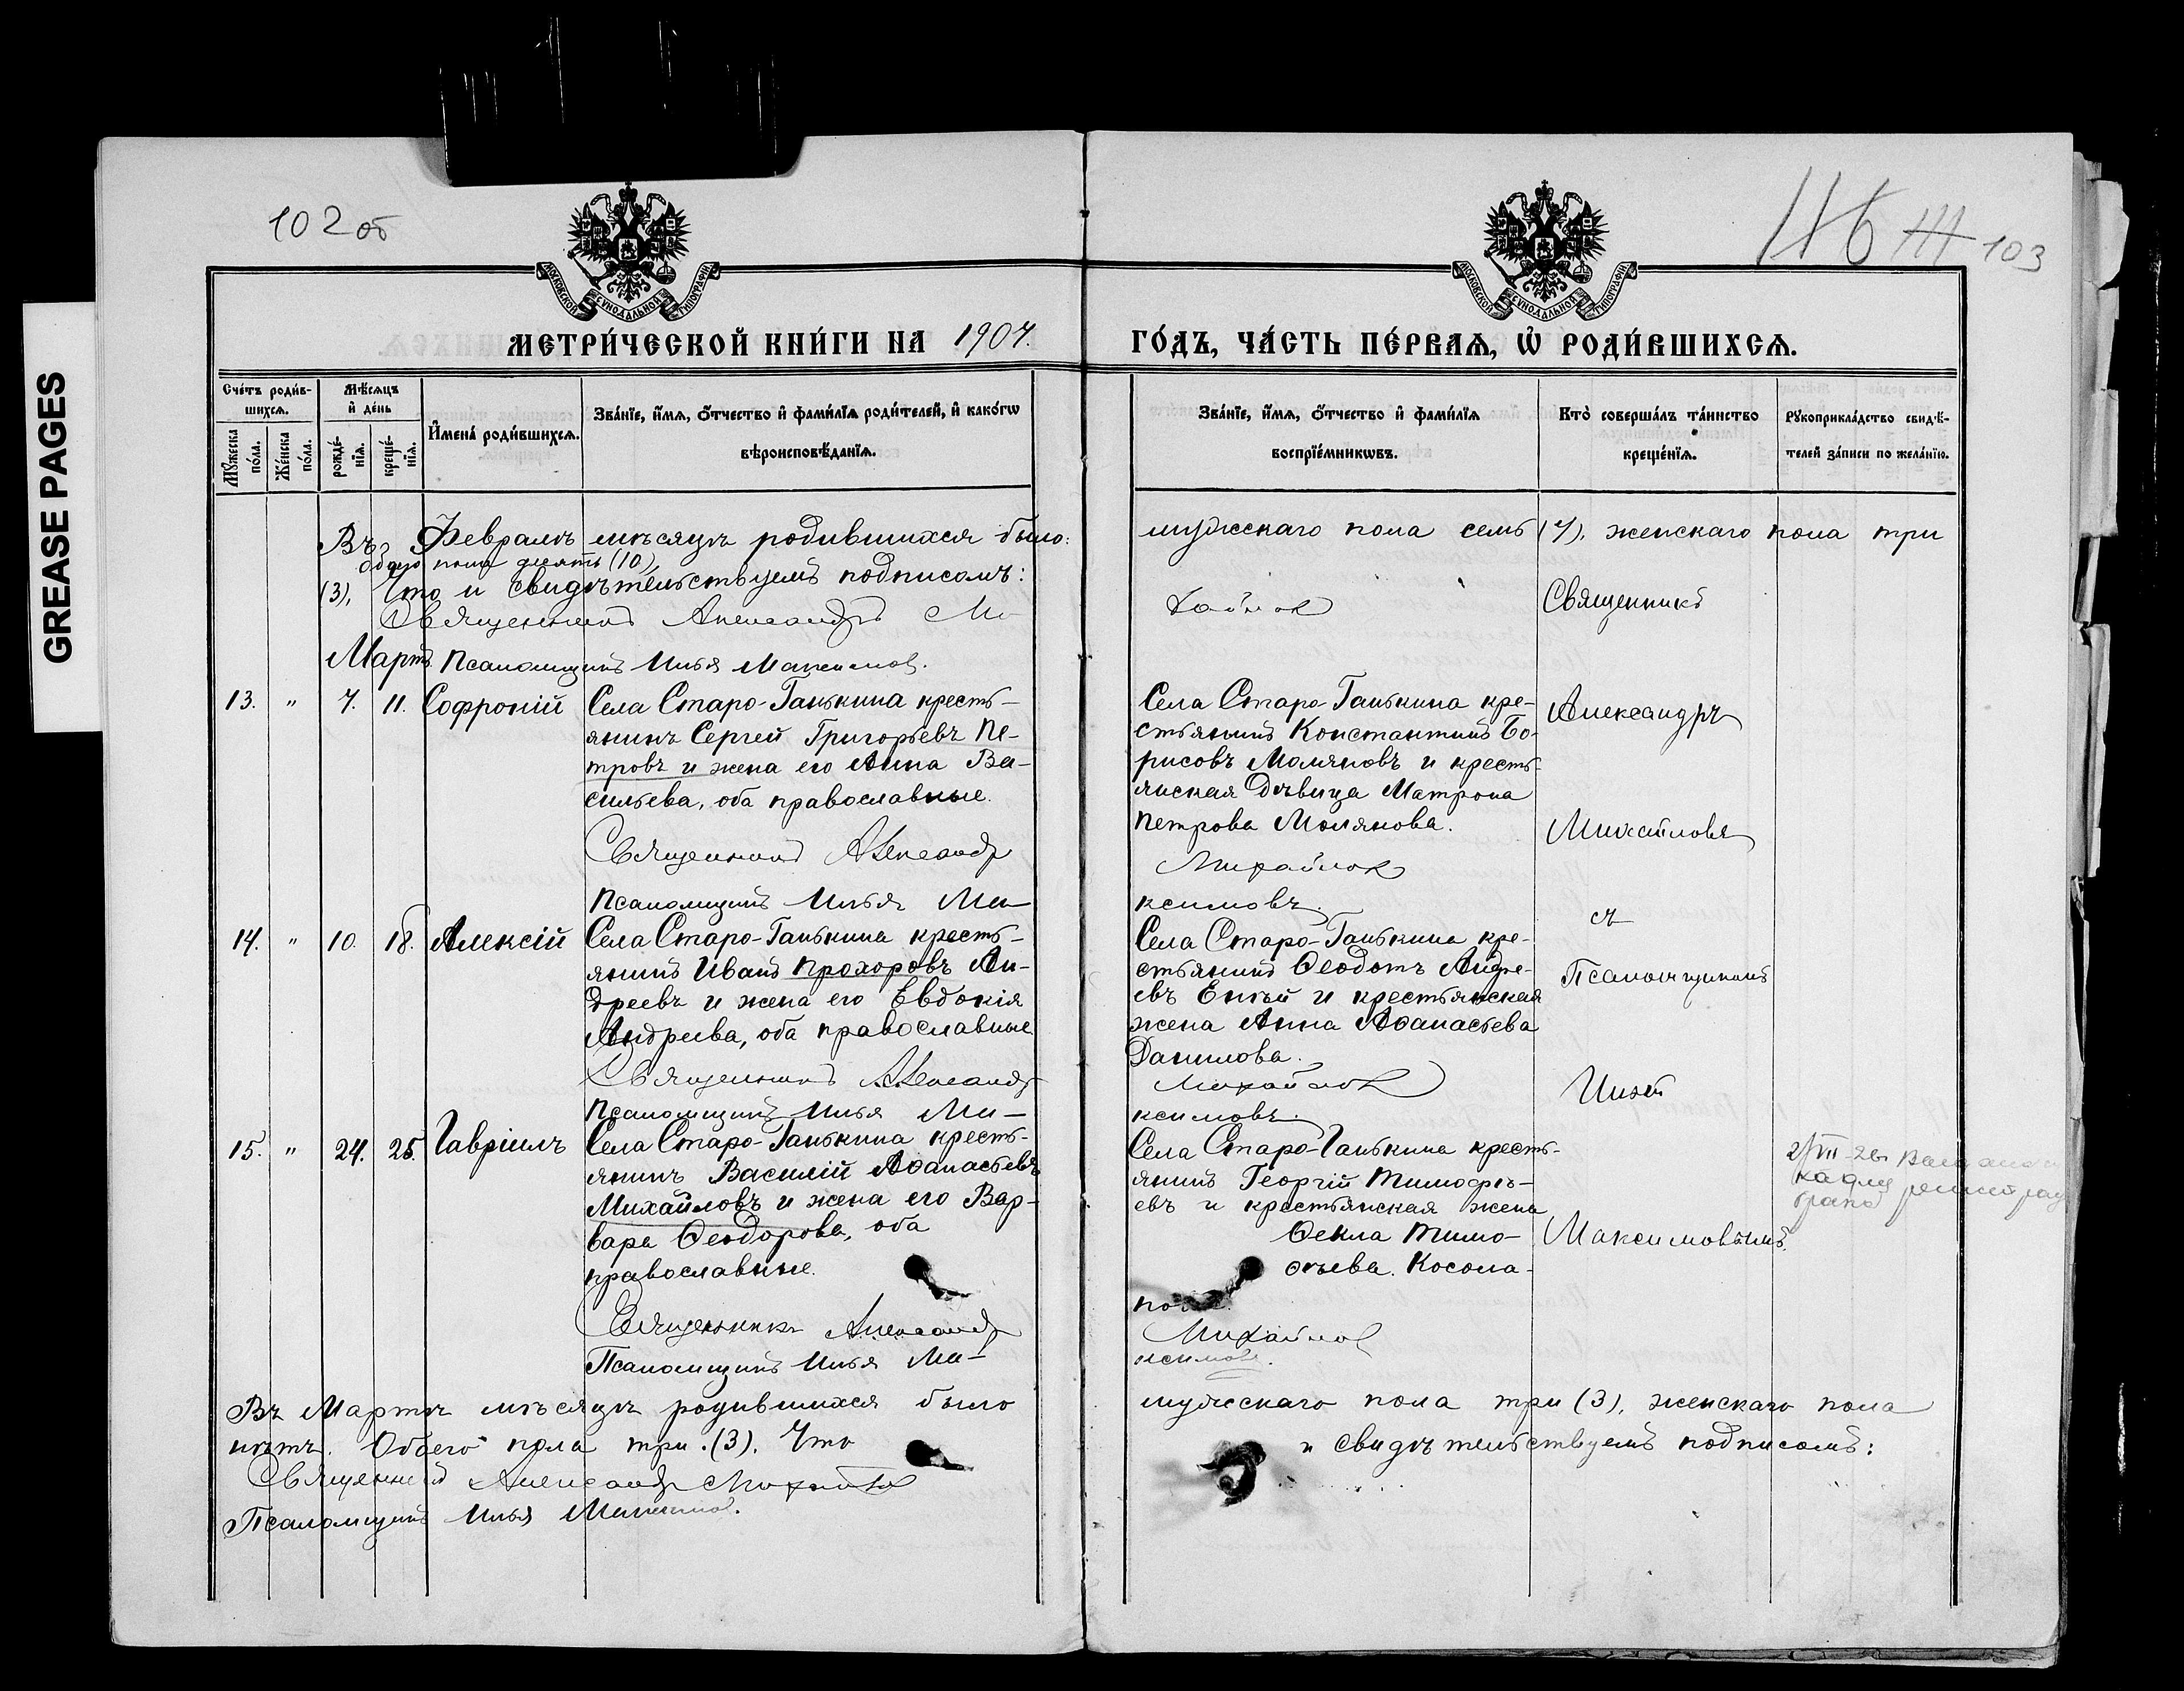 GREASE PAGES
102 об
116 103
МОСКОВСКОЙ СѴНОДАЛЬНОЙ ТИПОГРАФІИ
МОСКОВСКОЙ СѴНОДАЛЬНОЙ ТИПОГРАФІИ
МЕТРИ́ЧЕСКОЙ КНИ́ГИ НА 1907.
ГО́ДЪ, ЧА́СТЬ ПЕ́РВАѦ, Ѡ҆ РОДИ́ВШИХСѦ.
Сче́тъ роди́в-
шихсѧ.
Мꙋ́жеска по́ла.
Же́нска по́ла.
Мѣ́сѧцъ и҆ де́нь
рожде́-нїѧ.
креще́-нїѧ.
И҆мена̀ роди́вшихсѧ.
Зва́нїе, и҆́мѧ, ѻ҆́тчество и҆ фами́лїѧ роди́телей, и҆ како́гѡ
вѣроисповѣ́данїѧ.
Зва́нїе, и҆́мѧ, ѻ҆́тчество и҆ фами́лїѧ
воспрїе́мникѡвъ.
Кто̀ соверша́лъ та́инство
креще́нїѧ.
Рꙋкоприкла́дство свидѣ́-
телей за́писи по жела́нїю.
Въ Февралѣ мѣсяцѣ родившихся было:
мужескаго пола семь (7), женскаго пола три
обоего пола десять (10)
(3), Что и свидѣтельствуемъ подписомъ:
Священникъ Александръ Ми
хайлов
Священникъ
Мартъ. Псаломщикъ Илья Максимов.
13. " 7. 11. Софроній
Села Старо-Ганькина кресть-
янинъ Сергей Григорьевъ Пе-
тровъ и жена его Анна Ва-
сильева, оба православные.
Священникъ Александр
Псаломщикъ Илья Ма-
Села Старо-Ганькина кре-
стьянинъ Константинъ Бо-
рисовъ Моляновъ и кресть-
янская дѣвица Матрона
Петрова Молянова.
Михайлов
ксимовъ.
Александръ
Михайловъ
съ
14. " 10. 18. Алексій
Села Старо-Ганькина кресть-
янинъ Иванъ Прохоровъ Ан-
дреевъ и жена его Евдокія
Андреева, оба православные
Священникъ Александр
Псаломщикъ Илья Ма-
Села Старо-Ганькина кре-
стьянинъ Ѳеодотъ Андре-
евъ и крестьянская
жена Анна Аѳанасьева
Данилова.
Михайлов
ксимовъ.
Псаломщикомъ
Ильей
15. " 24. 25. Гавріилъ
Села Старо-Ганькина кресть-
янинъ Василій Аѳанасьевъ
Михайловъ и жена его Вар-
вара Ѳеодорова, оба
православные.
Священникъ Александр
Псаломщикъ Илья Ма-
Села Старо-Ганькина кресть-
янинъ Георгій Тимоѳѣ-
евъ и крестьянская жена
Ѳекла Тимо-
ѳѣева. Косола-
Михайлов
ксимовъ.
Максимовымъ.
Въ Мартѣ мѣсяцѣ родившихся было
мужескаго пола три (3), женскаго пола
нѣтъ. Обоего пола три. (3). Что
и свидѣтельствуемъ подписомъ:
Священникъ Александр Михайлов
Псаломщикъ Илья Максимов.